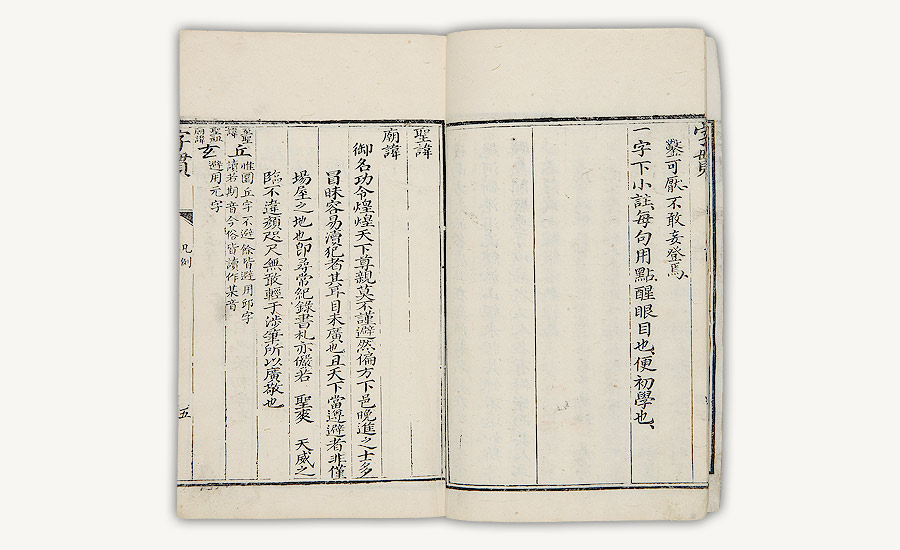 字貫
鑿可厭不敢妄登焉、
一字下小註、每句用點、醒眼目也、便初學也、
聖諱
廟諱
御名功令煌煌天下尊親莫不謹避然偏方下邑晚進之士多
冒昧容易瀆犯者其耳目未廣也且天下當遵避者非僅
場屋之地也即尋常紀錄書札亦儼若 聖爽 天威之
臨不違顏咫尺無敢輕于涉筆所以廣敬也
至聖諱丘惟圜丘字不避餘皆避用邱字
讀若期音今俗皆讀作某音
聖祖廟諱玄避用元字
字貫 凡例 五